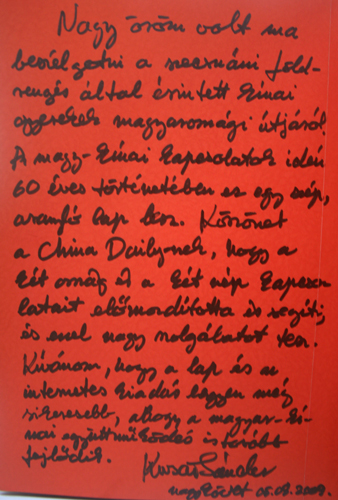 Nagy öröm volt ma
beszélgetni a szecsuáni föld-
rengés által érintett kínai
gyerekek magyarországi útjáról.
A magy-kínai kapcsolatok idén
60 éves történetében ez egy szép,
aranyló lap lesz. Köszönet
a China Daily-nek, hogy a
két ország és a két nép kapcso-
latait előmozdította és segíti,
és ezzel nagy szolgálatot tesz.
Kívánom, hogy a lap és az
internetes kiadás legyen még
sikeresebb, ahogy a magyar-kí-
nai együttműködés is tovább
fejlődik. Kusai Sándor
nagykövet 05.08.2009.